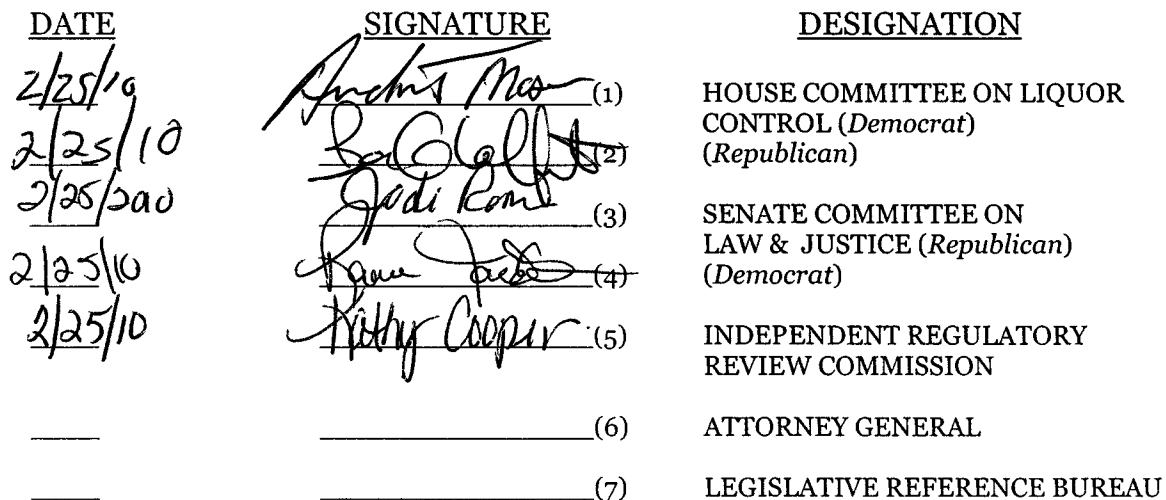 DATE SIGNATURE DESIGNATION
2/25/10 (1) HOUSE COMMITTEE ON LIQUOR
CONTROL (Democrat)
2/25/10 (2) (Republican)
2/25/2010 Jodi (3) SENATE COMMITTEE ON
LAW & JUSTICE (Republican)
2/25/10 (4) (Democrat)
2/25/10 Kathy Cooper (5) INDEPENDENT REGULATORY
REVIEW COMMISSION
(6) ATTORNEY GENERAL
(7) LEGISLATIVE REFERENCE BUREAU